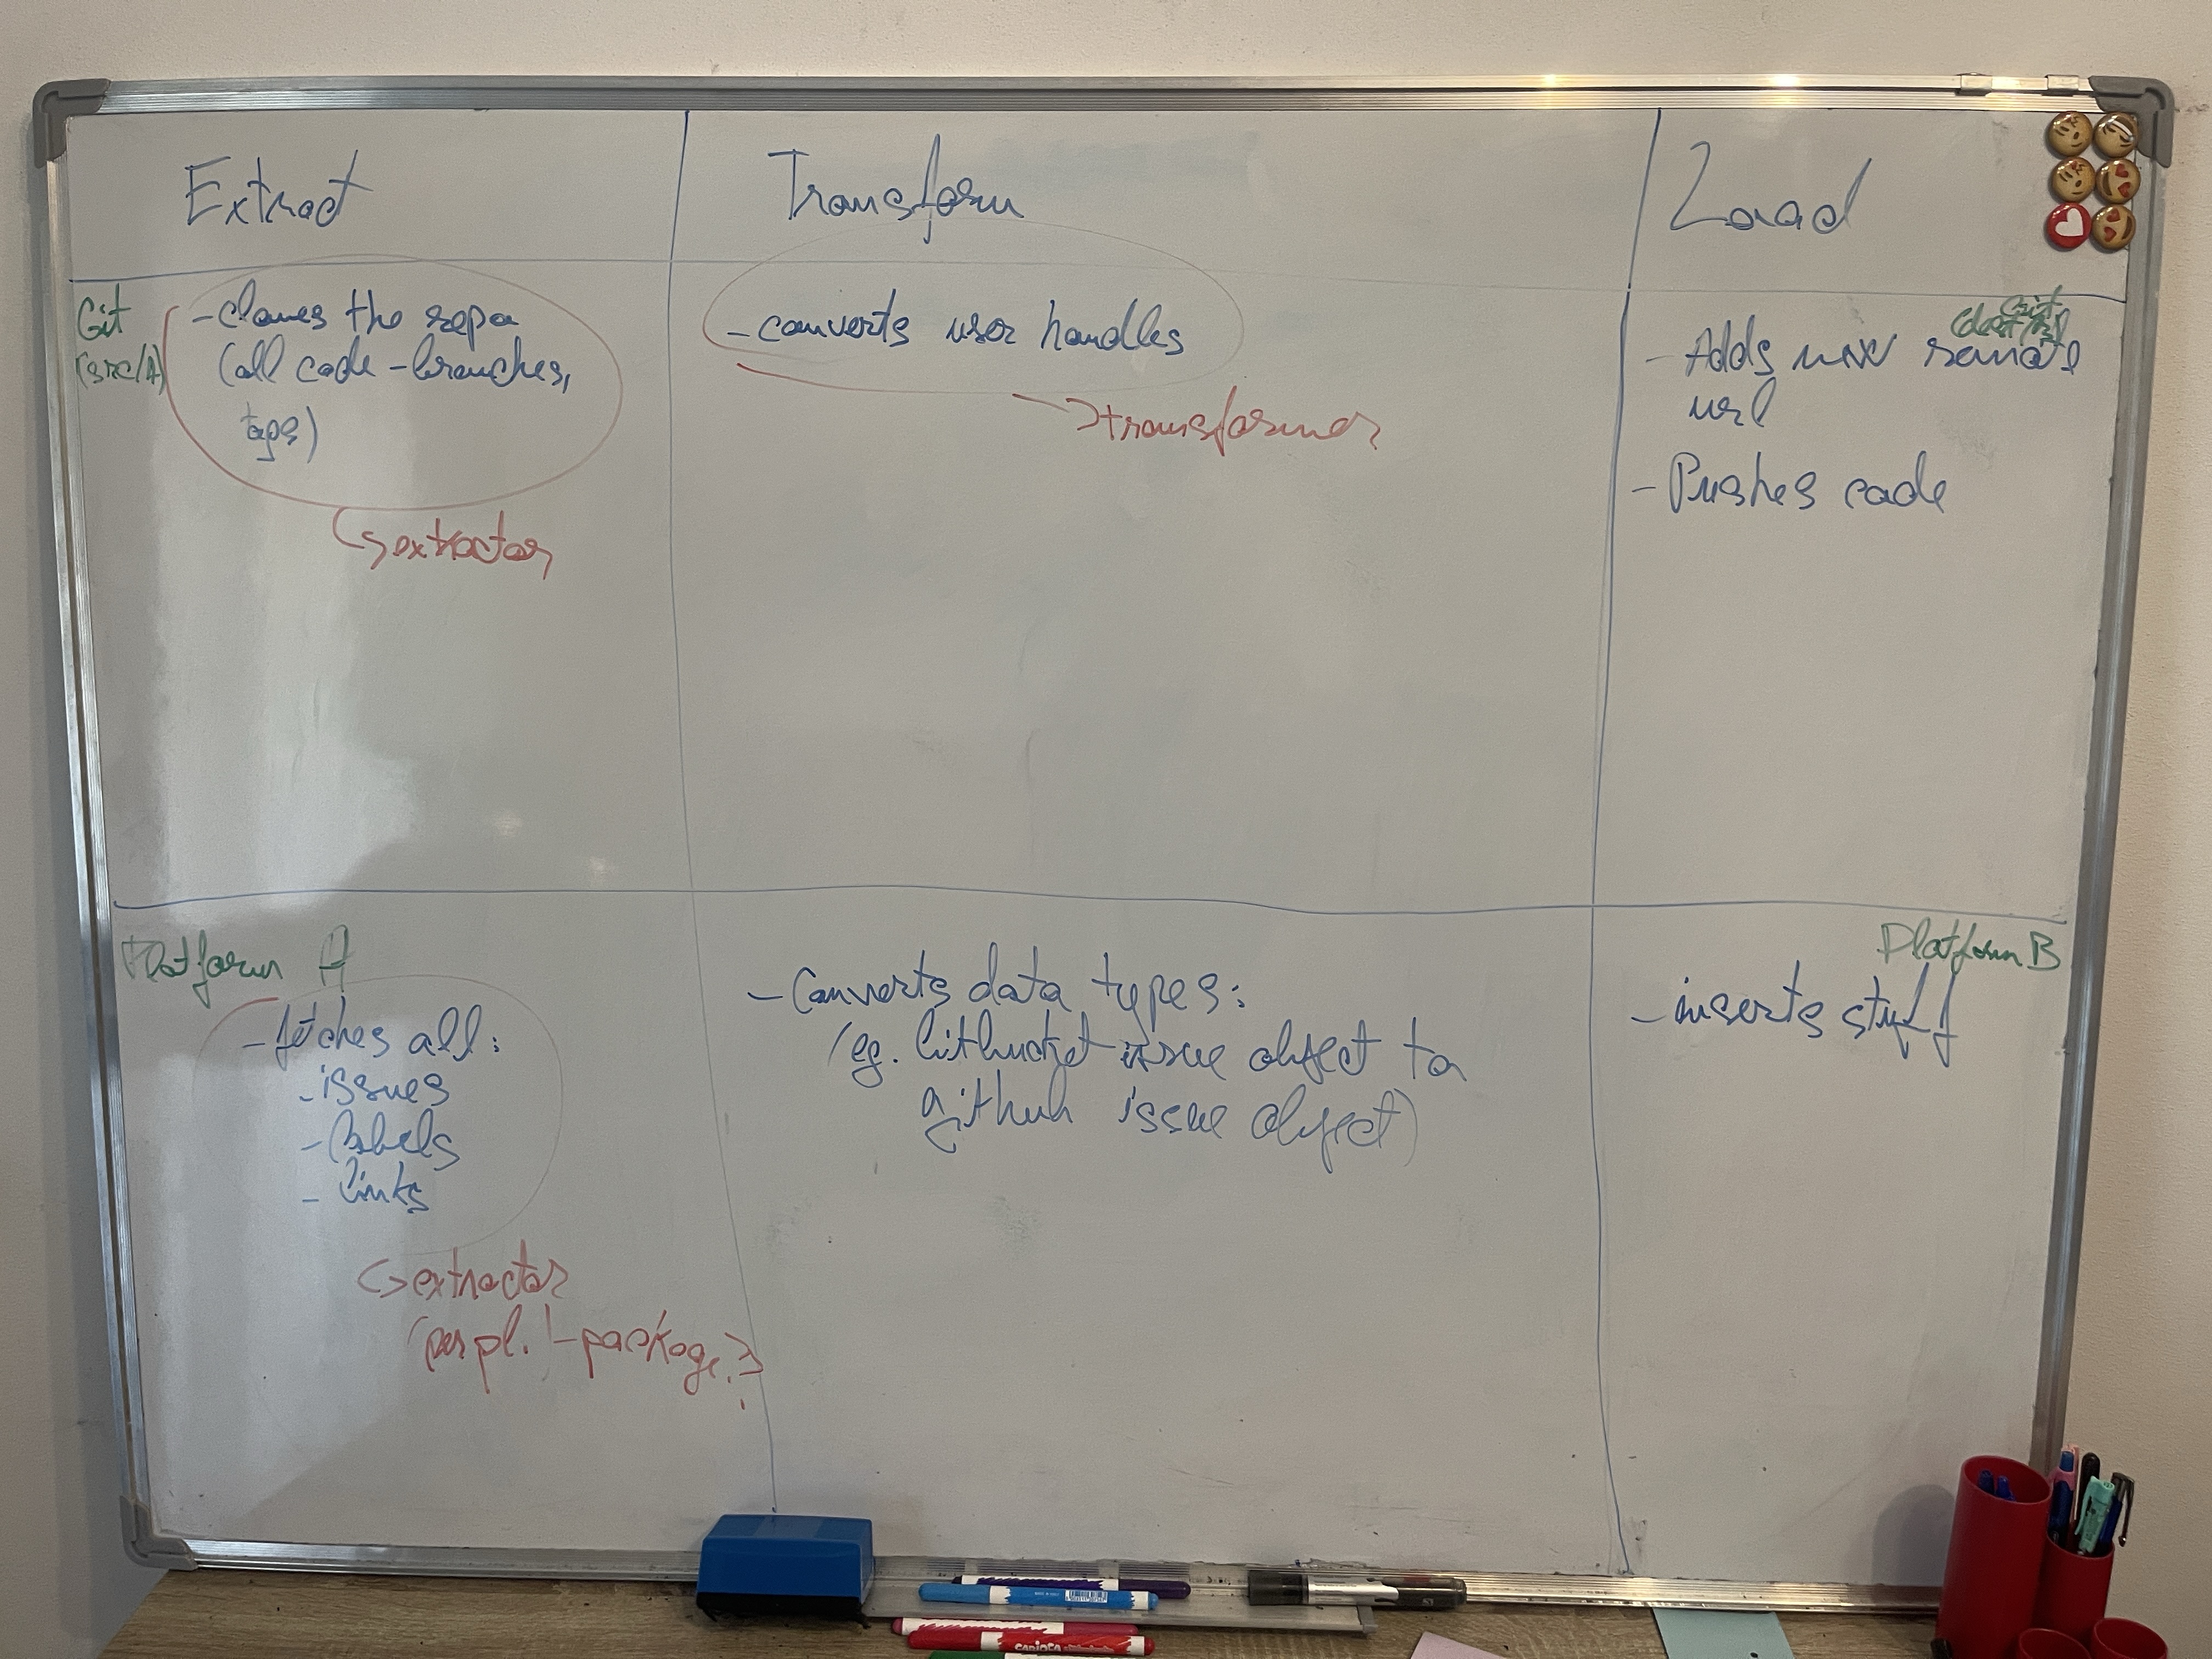 Extract
Transform
Load
Git
(src/A)
- clones the repo
(all code - branches,
tags)
extractor
- converts user handles
transformer
Git
(dest/B)
- Adds new remote
url
- Pushes code
Platform A
- fetches all:
- issues
- labels
- links
extractor
(per pl. 1 - package?)
- Converts data types:
(eg. bitbucket issue object to
github issue object)
Platform B
- inserts stuff
CARIOCA